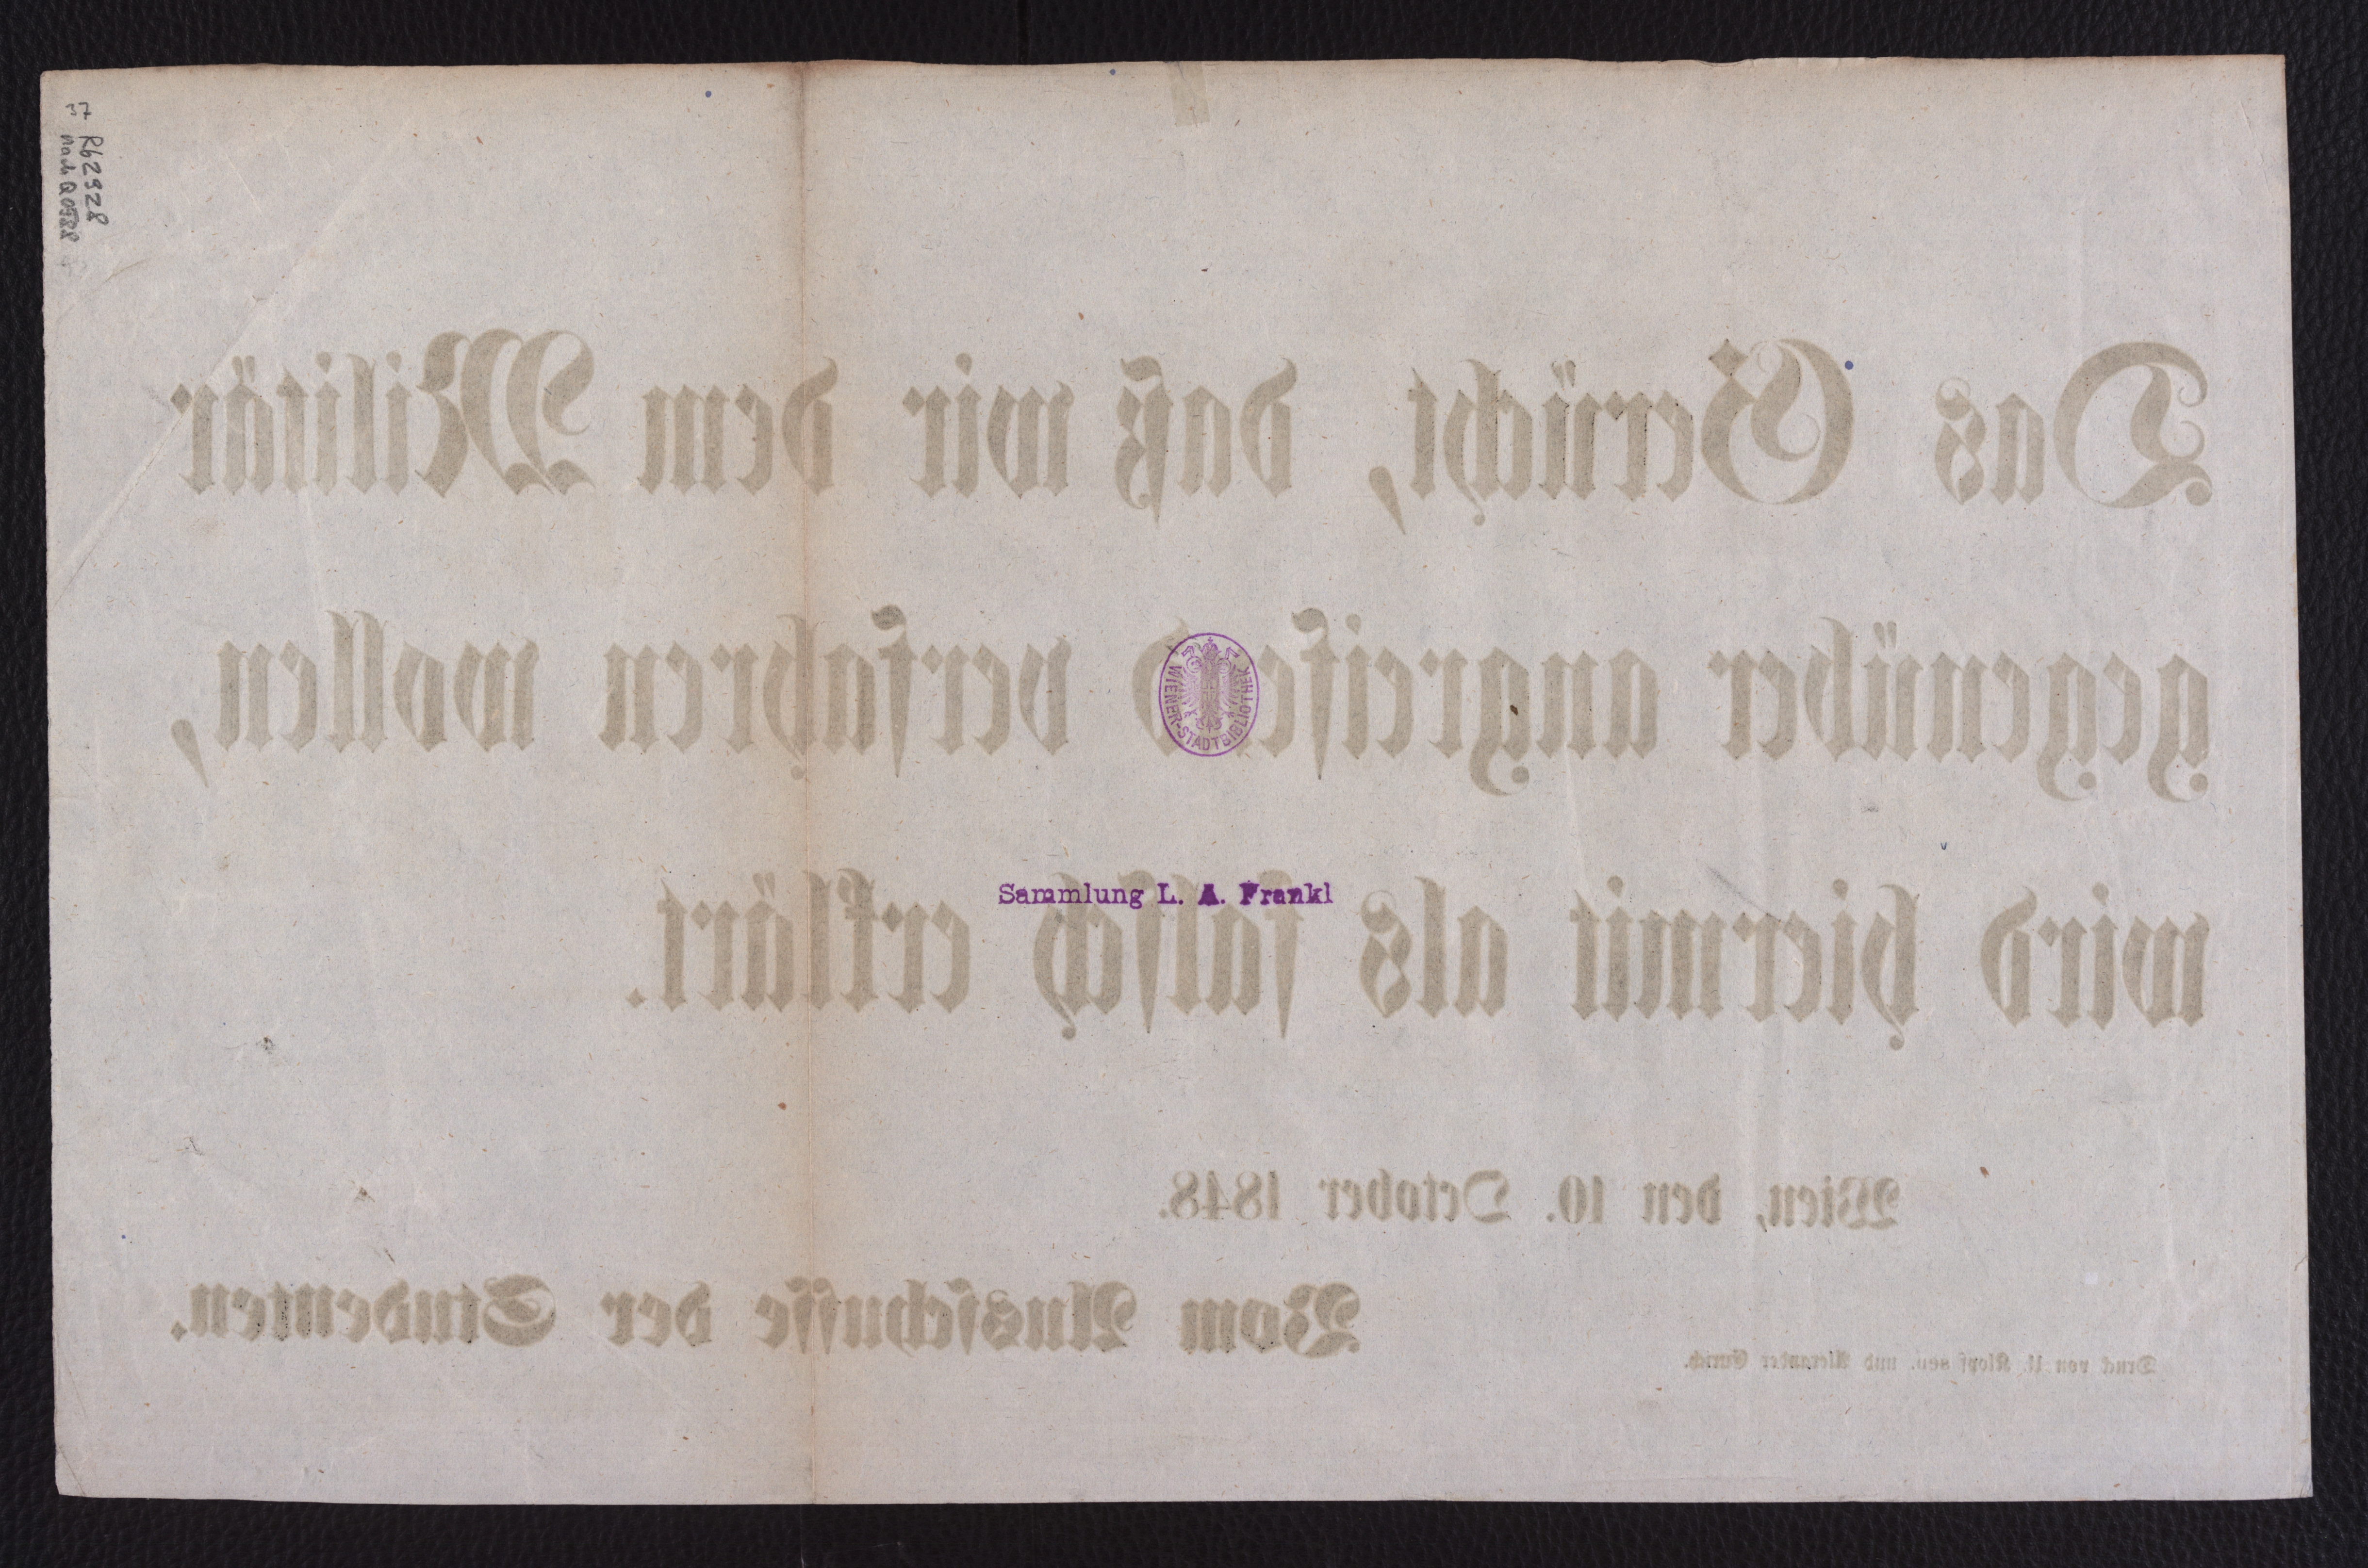 37
R62928
WIENER-STADTBIBLIOTHEK
Sammlung L. A. Frankl
Das Gerücht, daß wir dem Militär
gegenüber angreifend verfahren wollen,
wird hiermit als falsch erklärt.
Wien, den 10. October 1848.
Vom Ausschusse der Studenten.
Druck von U. Klopf sen. und Alexander Eurich.